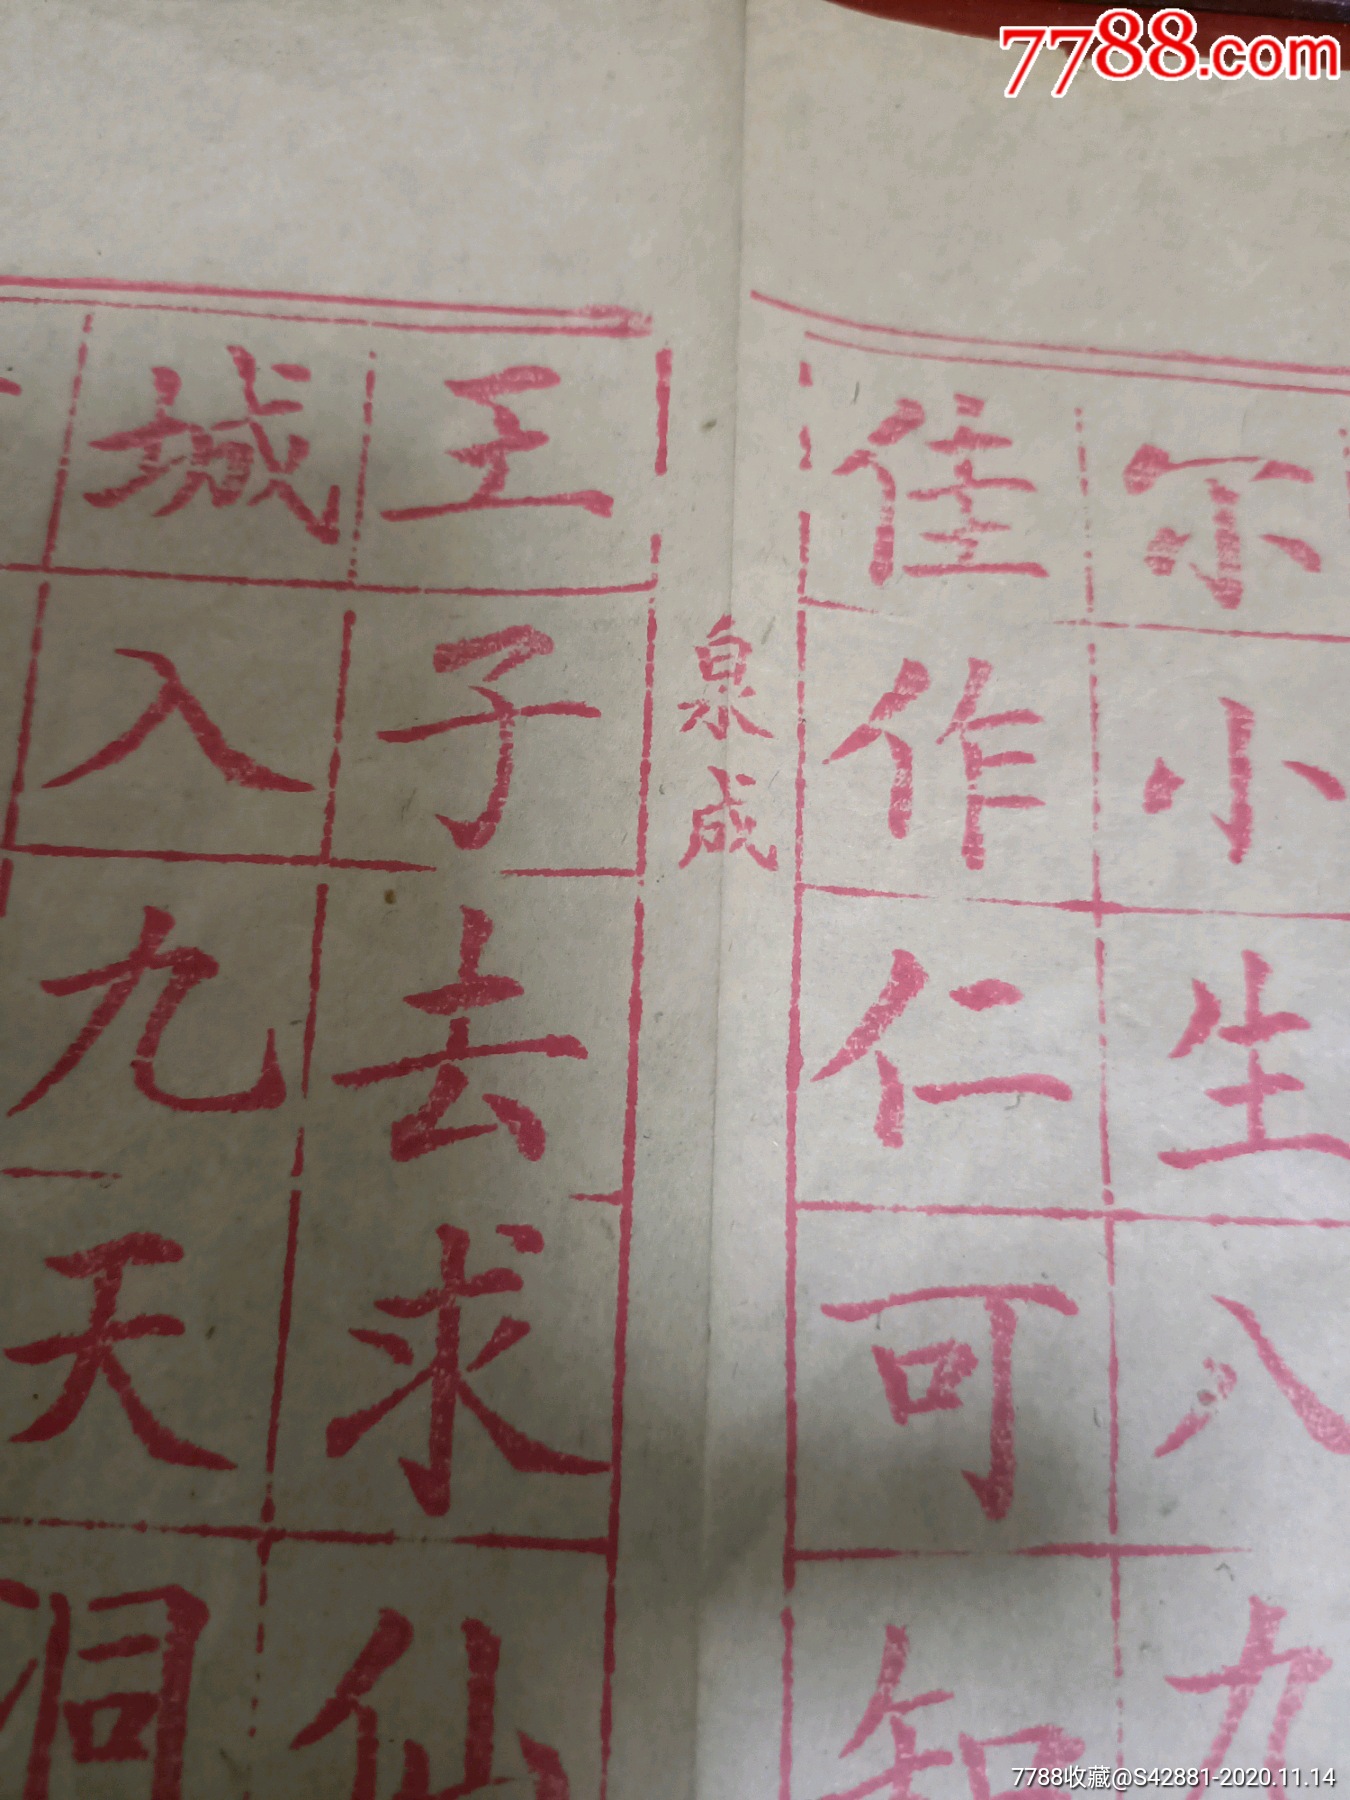 7788.com
尔小生八九
佳作仁可知
泉成
王子去求仙
城入九天洞
7788收藏@S42881-2020.11.14